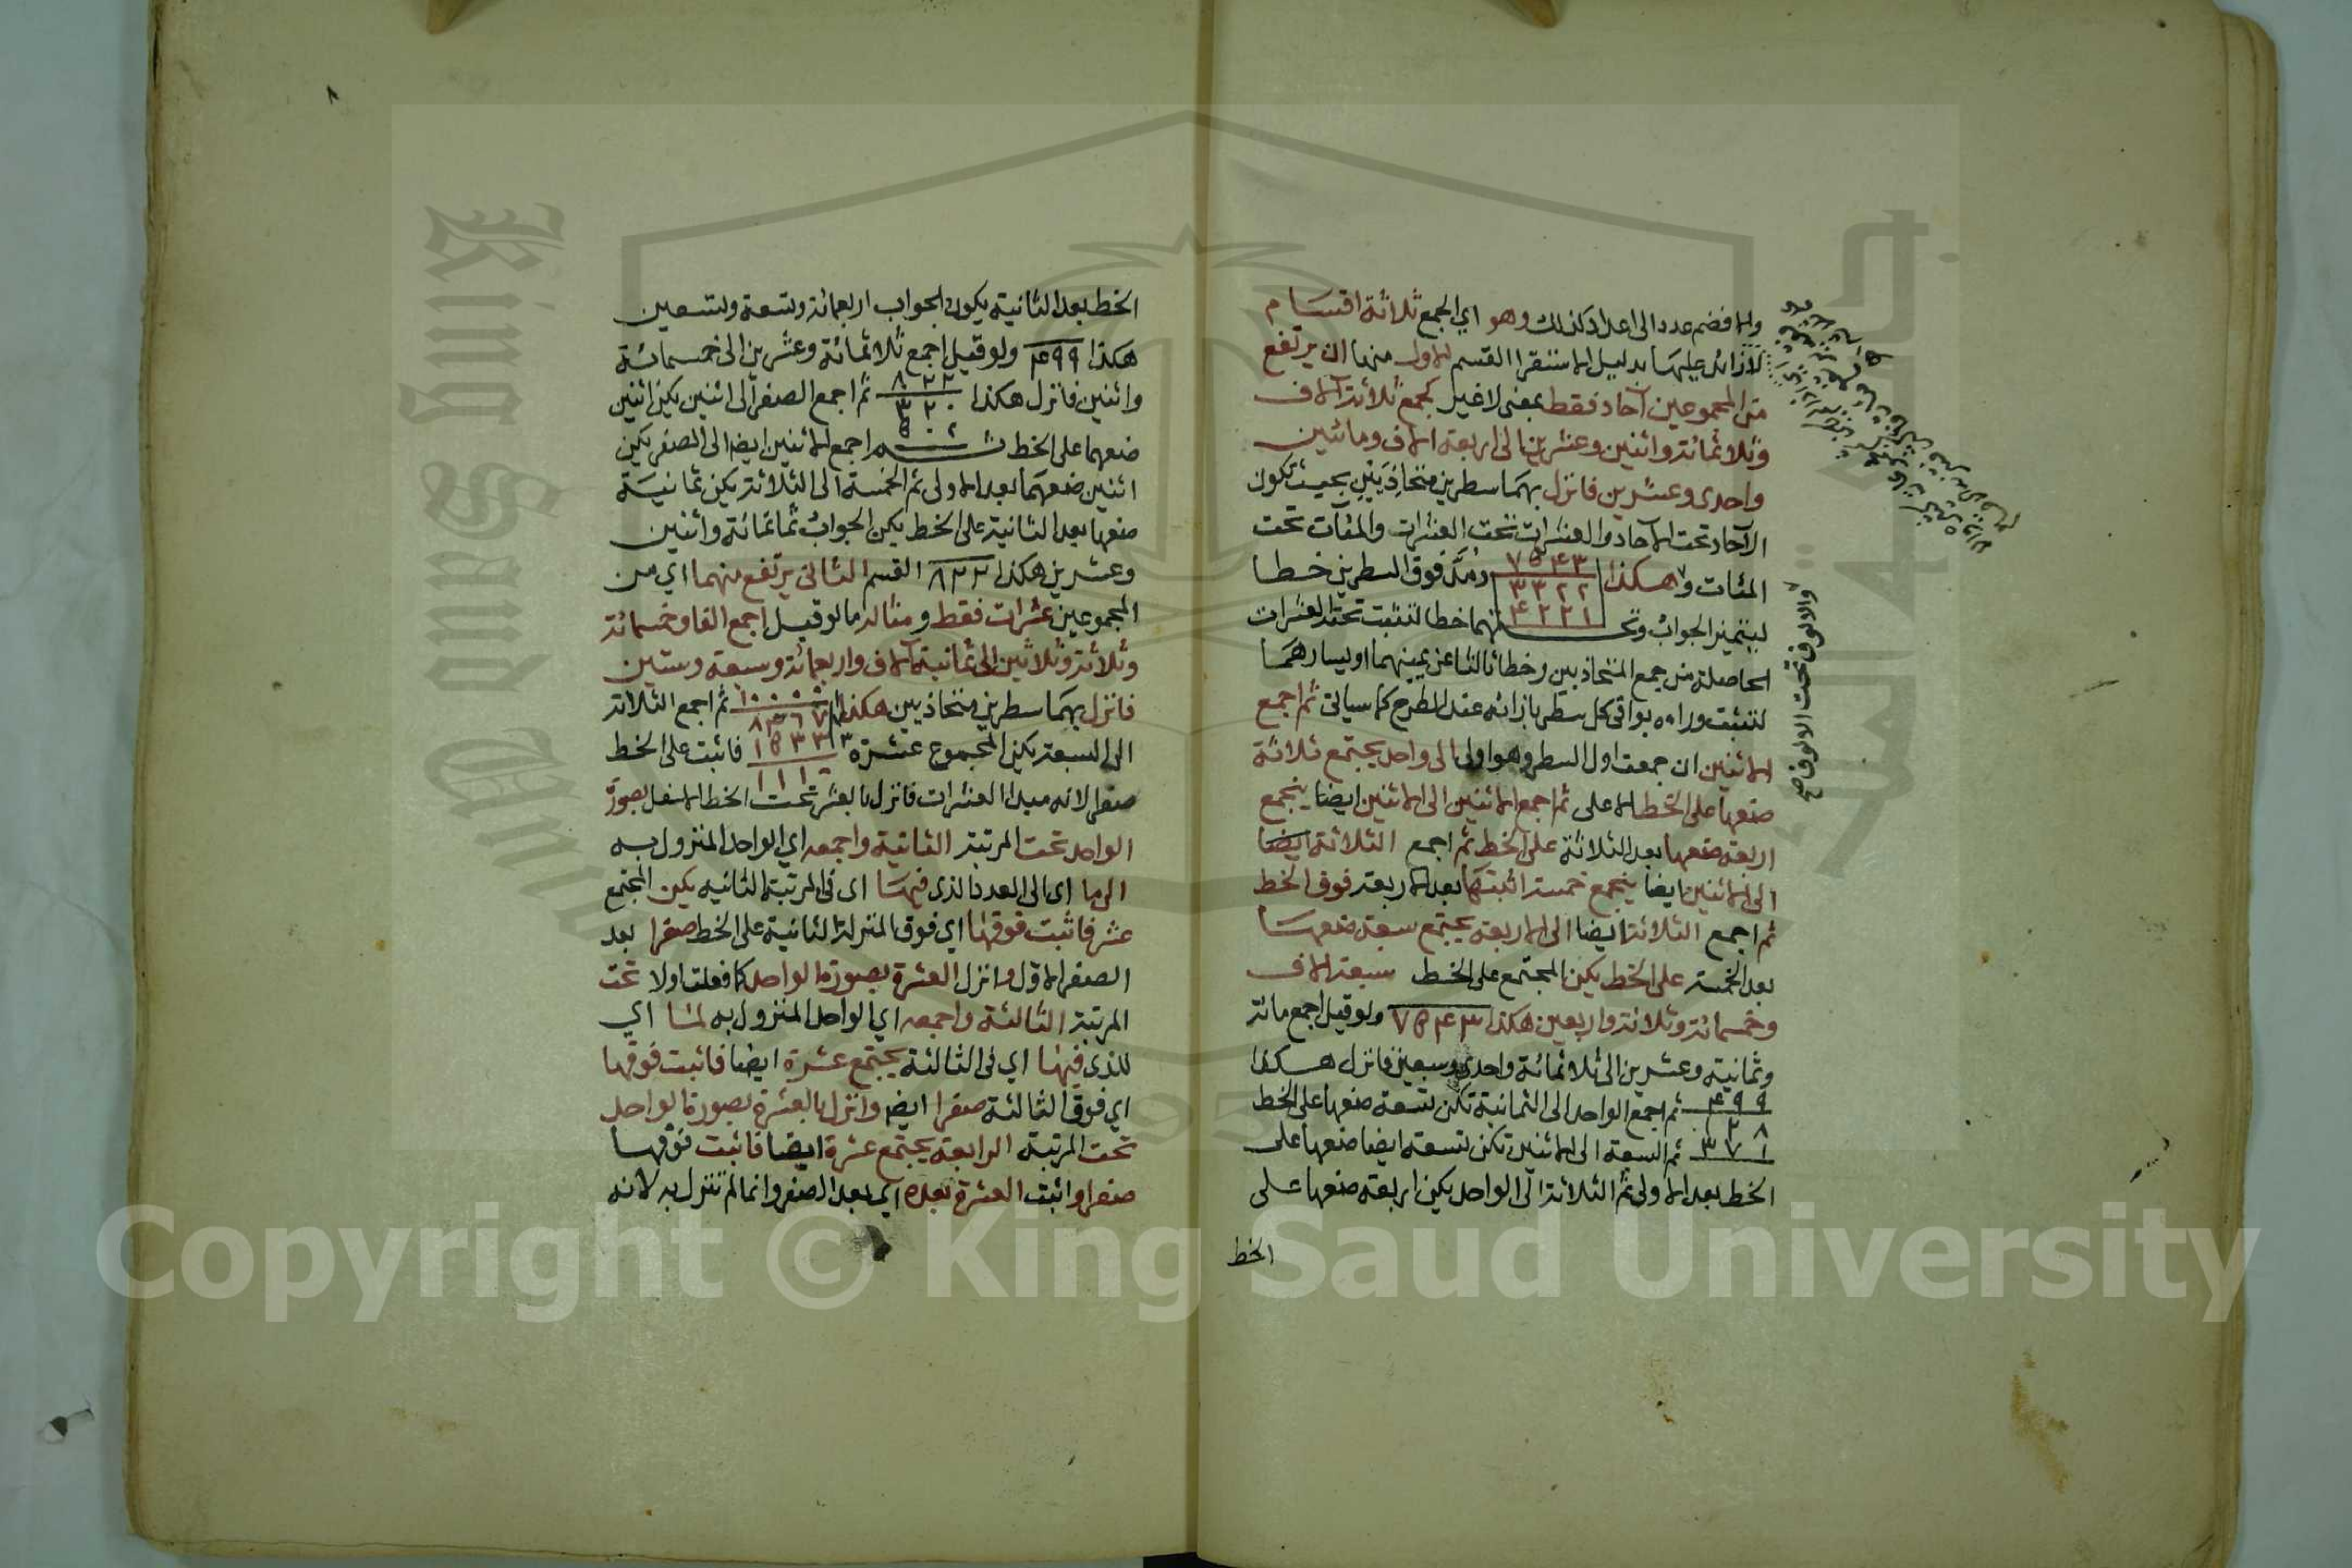 والا فضم عدد الى اعداد كذلك وهو اي الجمع ثلاثة اقسام
لا زائد عليها بدليل الاستقرا القسم الاول منها ان يرتفع
من المجموعين آحاد فقط بمعنى لا غير كجمع ثلاثة آلاف
وثلاثمائة واثنين وعشرين الى اربعة الاف ومائتين
واحدى وعشرين فانزل بهما سطرين متحاذيين بحيث تكون
الآحاد تحت الآحاد والعشرات تحت العشرات والمئات تحت
المئات وهكذا ٧٥٤٣ ومد فوق السطرين خطا
٣٣٢٢
٤٢٢١
ليتميز الجواب وتحتهما خطا لتثبت تحته العشرات
الحاصلة من جمع المتحاذيين وخطا ثالثا عن يمينهما او يسارهما
لتثبت وراءه بواقي كل سطر بازائه عند الطرح كما سياتي ثم اجمع
الاثنين ان جمعت اول السطر وهو اولى الى واحد يجتمع ثلاثة
ضعها على الخط الاعلى ثم اجمع الاثنين الى الاثنين ايضا يجتمع
اربعة ضعها بعد الثلاثة على الخط ثم اجمع الثلاثة ايضا
الى الاثنين ايضا يجتمع خمسة اثبتها بعد الاربعة فوق الخط
ثم اجمع الثلاثة ايضا الى الاربعة يجتمع سبعة ضعها
بعد الخمسة على الخط يكن المجتمع على الخط سبعة الاف
وخمسمائة وثلاثة واربعين هكذا ٧٥٤٣ ولو قيل اجمع مائة
وثمانية وعشرين الى ثلاثمائة واحدى وسبعين فانزل هكذا
٤٩٩ ثم اجمع الواحد الى الثمانية تكن تسعة ضعها على الخط
٣٧١ ثم السبعة الى الاثنين تكن تسعة ايضا ضعها على
الخط بعد الاولى ثم الثلاثة الى الواحد يكن اربعة ضعها على
الخط
والالوف تحت الالوف صح
٨
الخط بعد الثانية يكون الجواب اربعمائة وتسعة وتسعين
هكذا ٤٩٩ ولو قيل اجمع ثلاثمائة وعشرين الى خمسمائة
واثنين فانزل هكذا ٨٢٢ ثم اجمع الصفر الى اثنين يكن اثنين
٣٢٠
٥٠٢
ضعهما على الخط ثم اجمع الاثنين ايضا الى الصفر يكن
اثنين ضعهما بعد الاولى ثم الخمسة الى الثلاثة يكن ثمانية
ضعها بعد الثانية على الخط يكن الجواب ثمانمائة واثنين
وعشرين هكذا ٨٢٢ القسم الثاني يرتفع منهما اي من
المجموعين عشرات فقط ومثاله ما لو قيل اجمع الفا وخمسمائة
وثلاثة وثلاثين الى ثمانية آلاف واربعمائة وسبعة وستين
فانزل بهما سطرين متحاذيين هكذا ١٠٠٠٠ ثم اجمع الثلاثة
٨٤٦٧
١٥٣٣
١١١
الى السبعة يكن المجموع عشرة فاثبت على الخط
صفرا لانه مبدا العشرات فانزل بالعشرة تحت الخط الاسفل بصورة
الواحد تحت المرتبة الثانية واجمعه اي الواحد المنزول به
الى ما اى الى العدد الذى فيها اى فى المرتبة الثانيه يكن المجتمع
عشر فاثبت فوقها اي فوق المنزلة الثانية على الخط صفرا بعد
الصفر الاول وانزل العشرة بصورة الواحد كما فعلت اولا تحت
المرتبة الثالثة واجمعه اي الواحد المنزول به لما اي
للذى فيها اي فى الثالثة يجتمع عشرة ايضا فاثبت فوقها
اي فوق الثالثة صفرا ايضا وانزل بالعشرة بصورة الواحد
تحت المرتبة الرابعة يجتمع عشرة ايضا فاثبت فوقها
صفرا واثبت العشرة بعده اي بعد الصفر وانما لم تنزل به لانه
King Saud University
Copyright © King Saud University